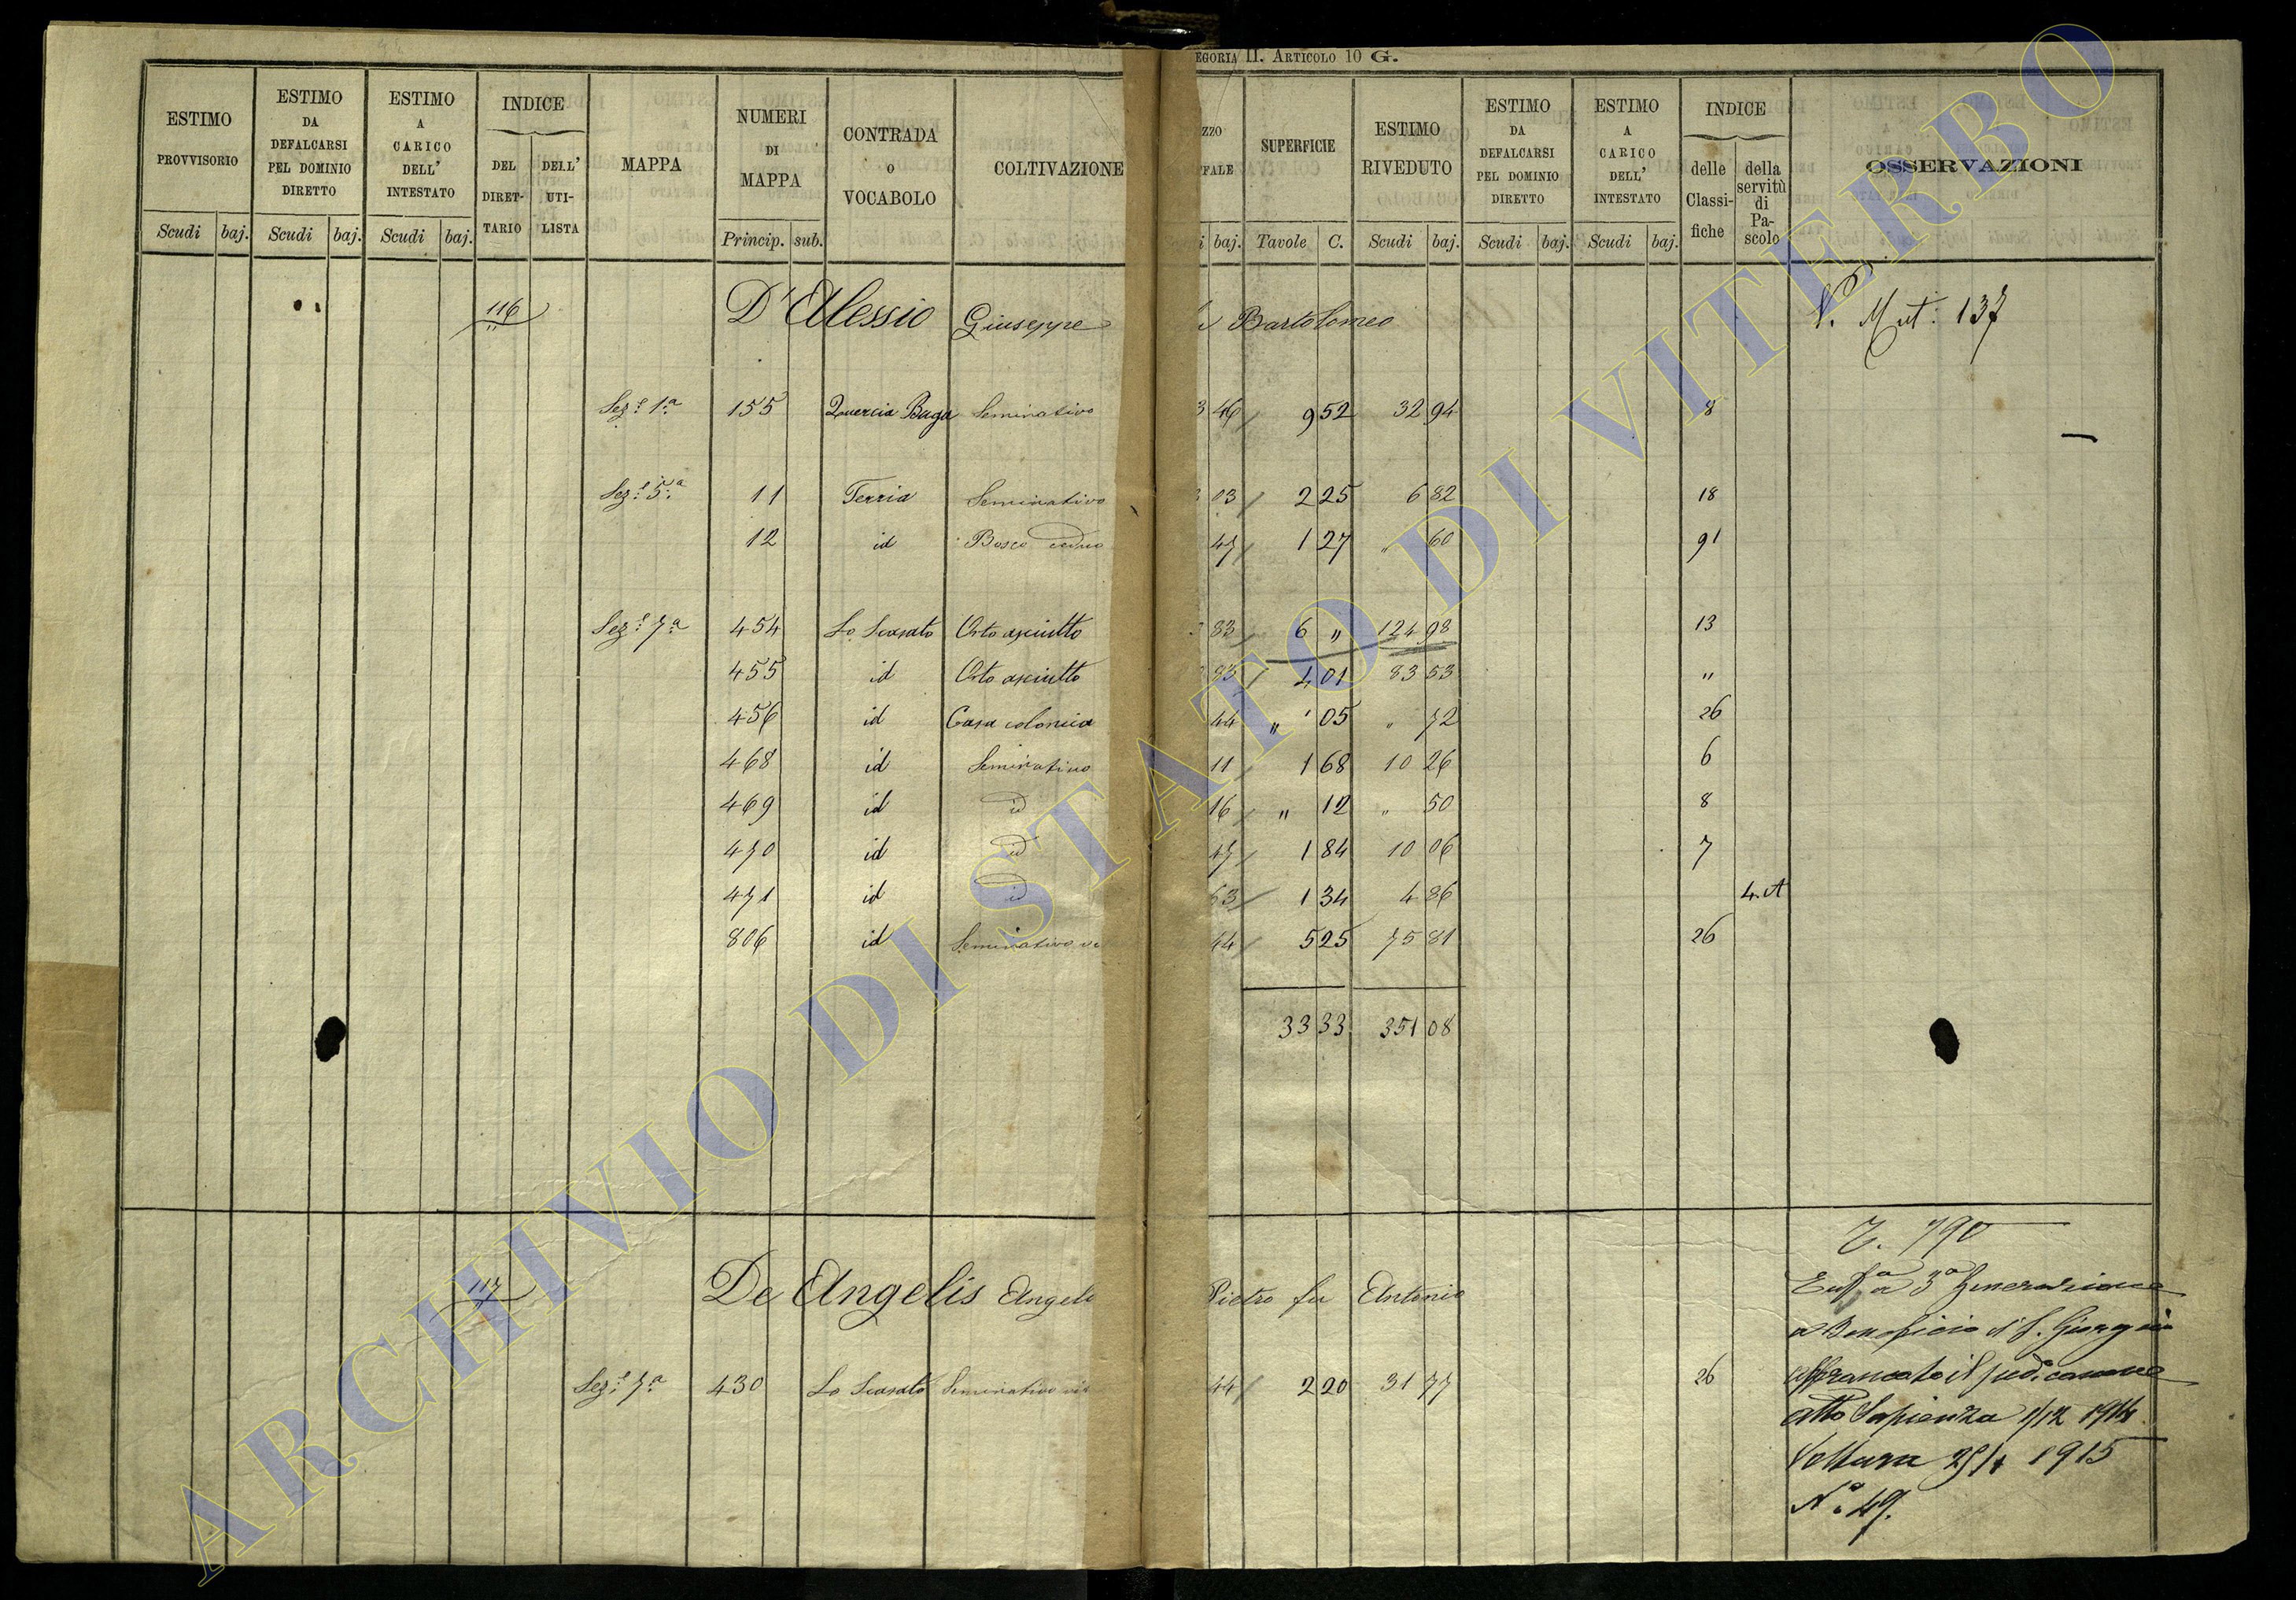 EGORIA II. ARTICOLO 10 G.
ESTIMO PROVVISORIO Scudi baj.
ESTIMO DA DEFALCARSI PEL DOMINIO DIRETTO Scudi baj.
ESTIMO A CARICO DELL' INTESTATO Scudi baj.
INDICE DEL DIRET-TARIO DELL' UTI-LISTA
MAPPA
NUMERI DI MAPPA Princip. sub.
CONTRADA o VOCABOLO
COLTIVAZIONE
ZZO FALE baj.
SUPERFICIE Tavole C.
ESTIMO RIVEDUTO Scudi baj.
ESTIMO DA DEFALCARSI PEL DOMINIO DIRETTO Scudi baj.
ESTIMO A CARICO DELL' INTESTATO Scudi baj.
INDICE delle Classi-fiche della servitù di Pa-scolo
OSSERVAZIONI
116 D'Alessio Giuseppe Bartolomeo V. Mut: 137
Sez.e 1.a 155 Quercia Buga Seminativo 3 46 9 52 32 94 8
Sez.e 5.a 11 Terria Seminativo 03 2 25 6 82 18
12 id Bosco ceduo 47 1 27 " 60 91
Sez.e 7.a 454 Lo Scasato Orto asciutto 83 6 " 124 98 13
455 id Orto asciutto 83 4 01 83 53 "
456 id Casa colonica 44 " 05 " 72 26
468 id Seminativo 11 1 68 10 26 6
469 id id 16 " 12 " 50 8
470 id id 47 1 84 10 06 7
471 id id 63 1 34 4 86 4. A
806 id Seminativo vi 44 5 25 75 81 26
33 33 351 08
117 De Angelis Angelo Pietro fu Antonio
Sez.e 7.a 430 Lo Scasato Seminativo vit 44 2 20 31 77 26
790
a 3a Generazione
a Beneficio di S. Giorgio
affrancato il sud.o canone
atto Sapienza 1/12 1914
Voltura 1915
N.o 49.
ARCHIVIO DI STATO DI VITERBO